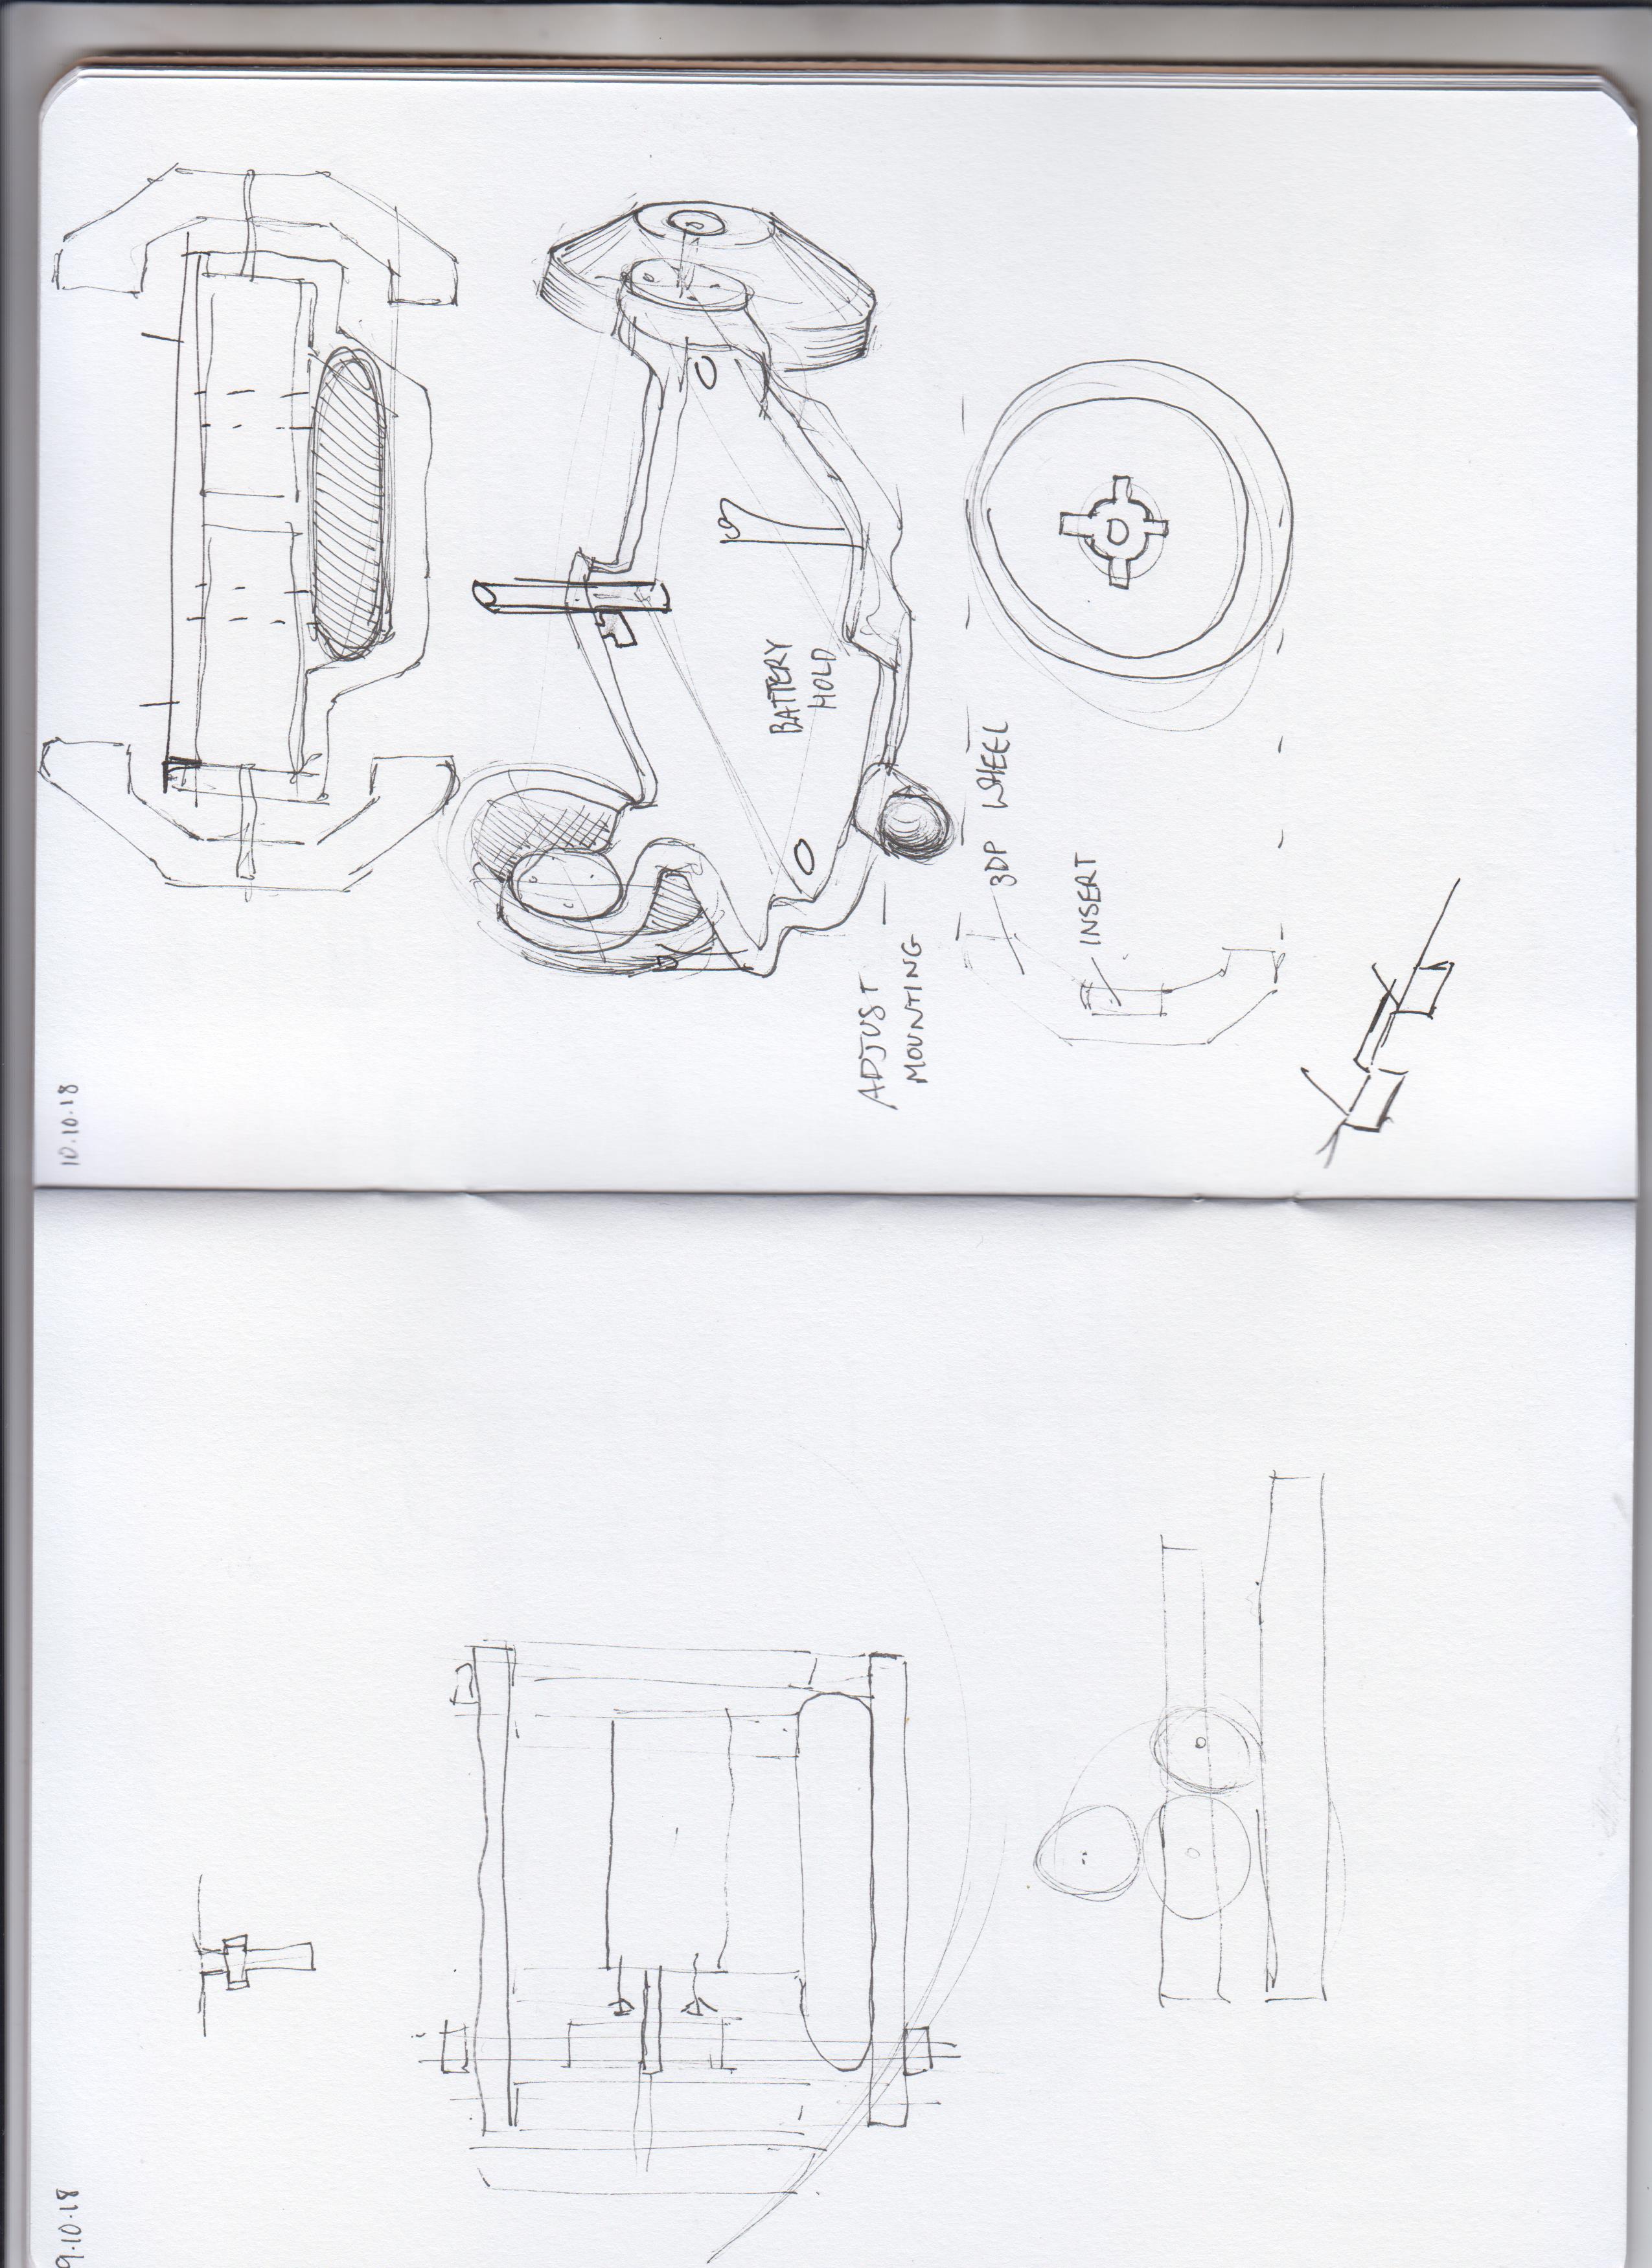 9.10.18
10.10.18
BATTERY
HOLD
ADJUST
MOUNTING
3DP WHEEL
INSERT